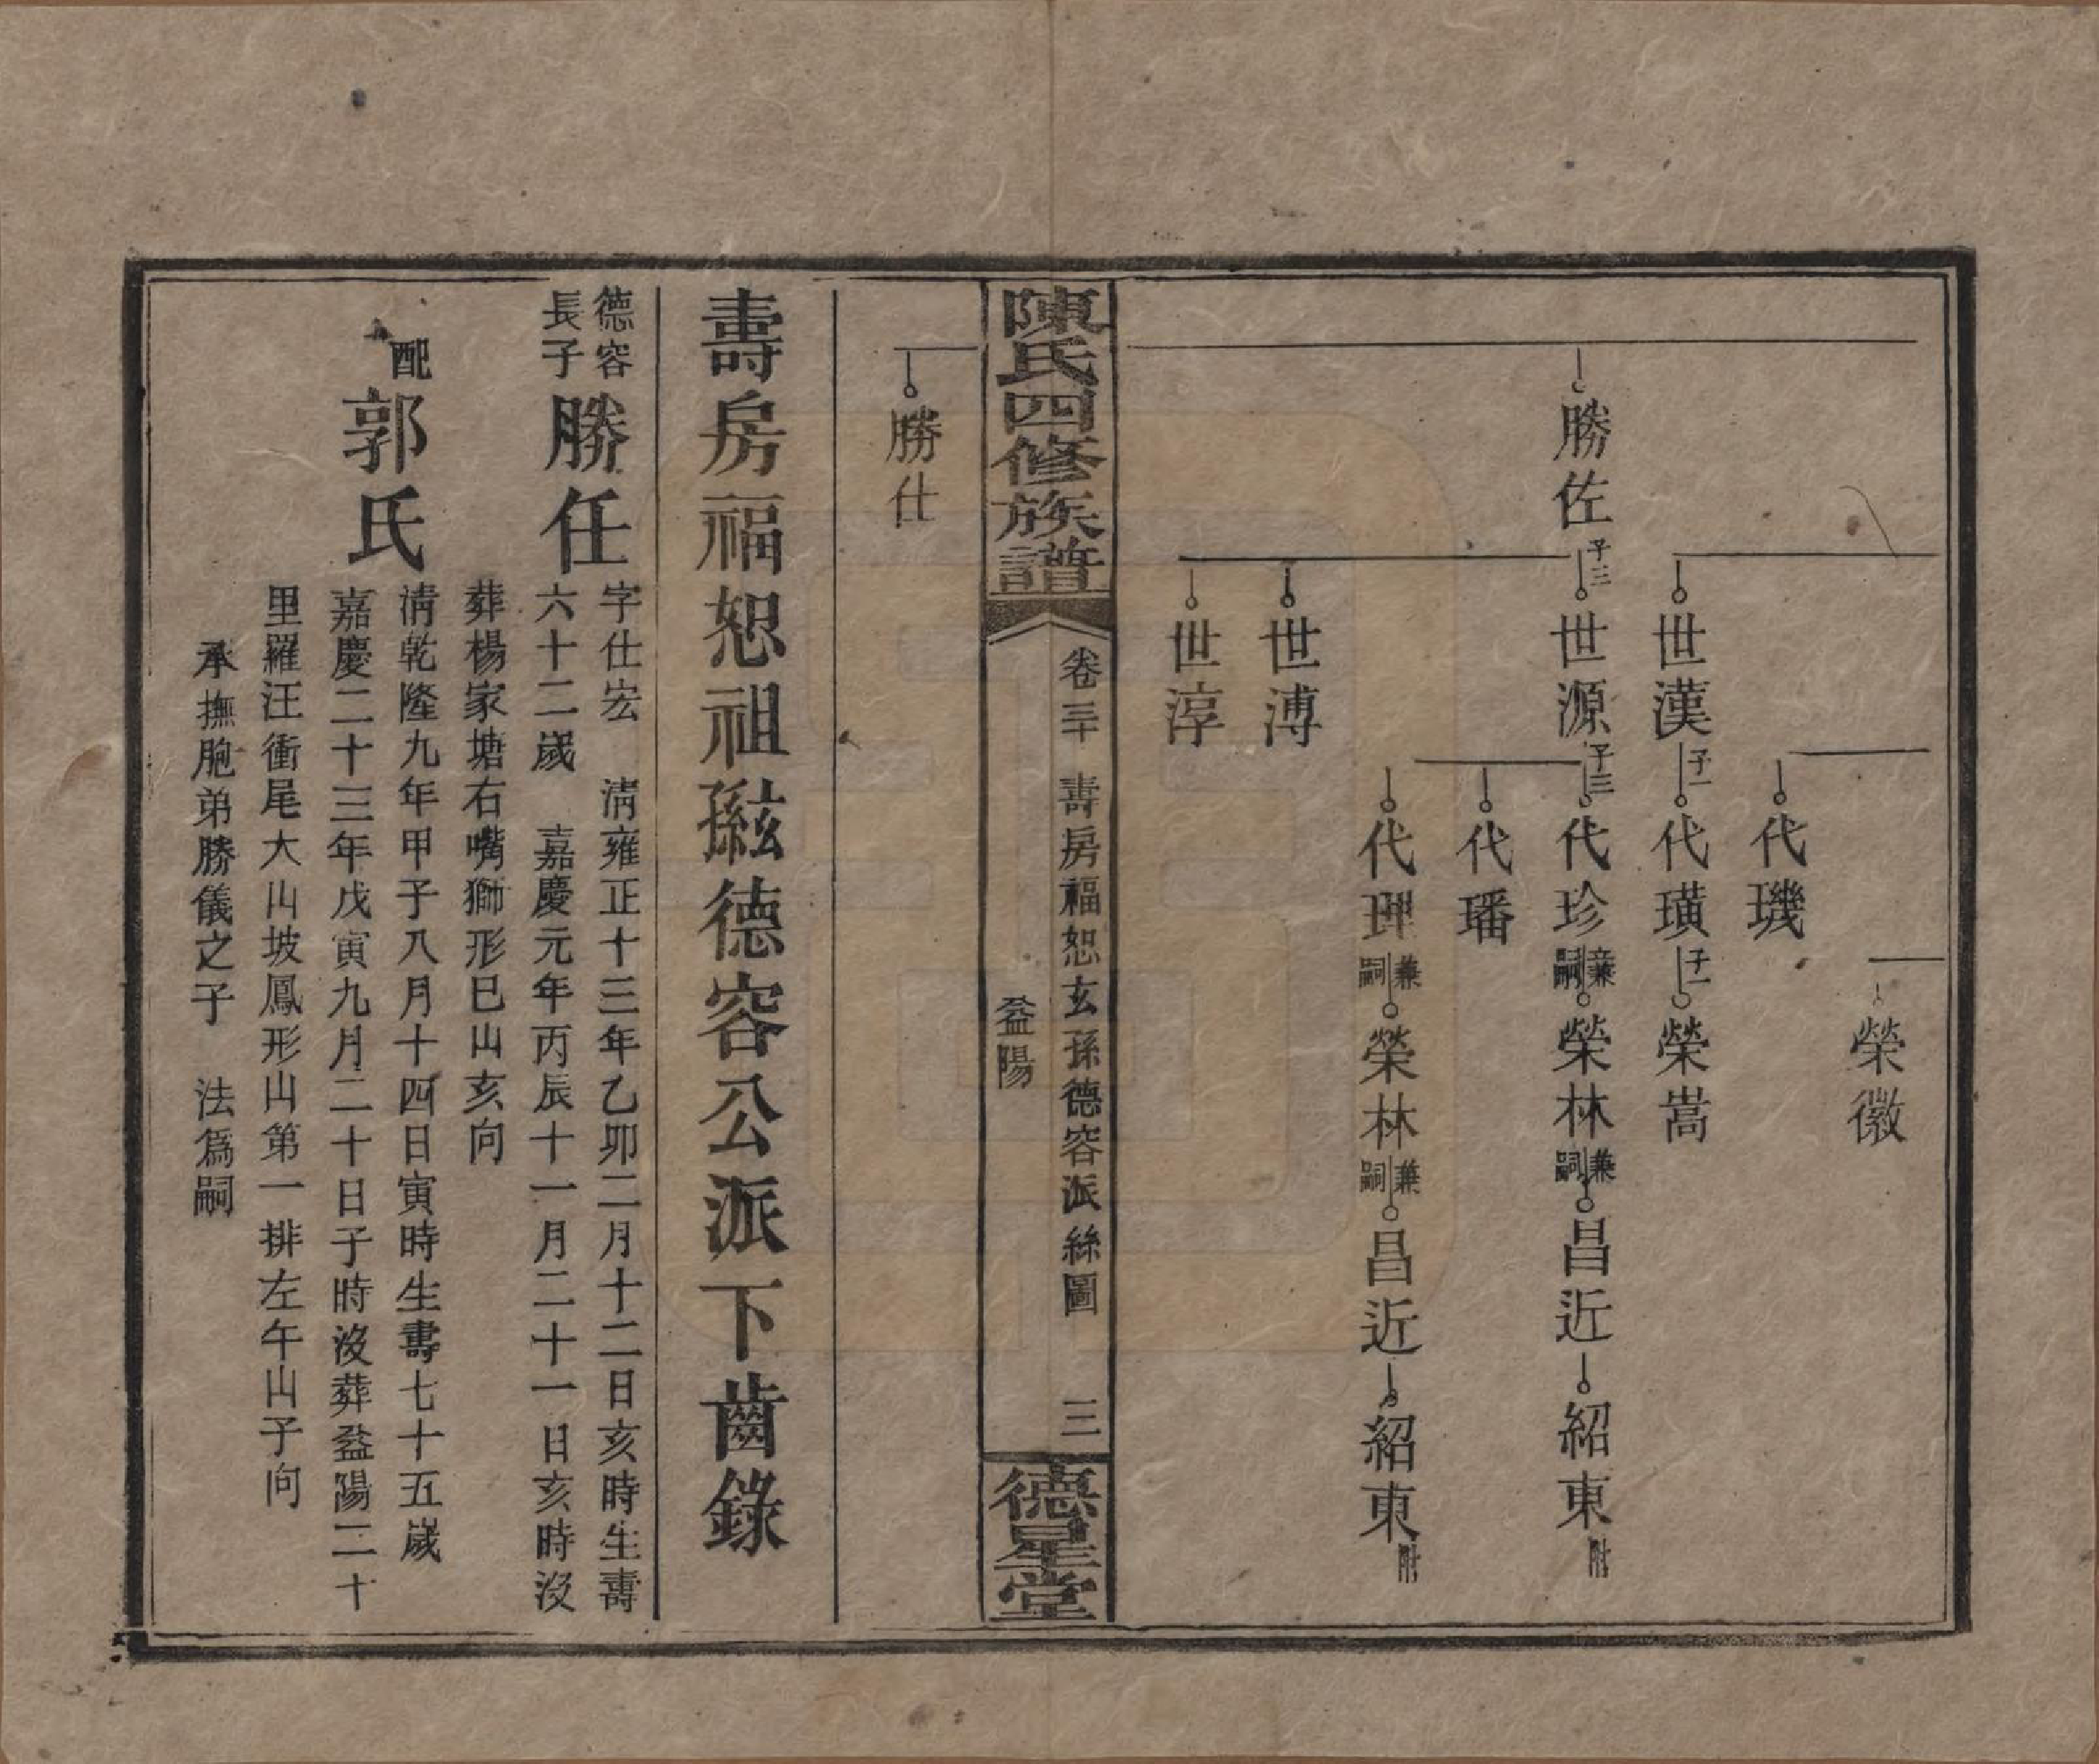 榮徽
代璣
世漢 子一 代璜 子一 榮嵩
勝佐 子三 世源 子三 代珍 兼嗣 榮林 兼嗣 昌近 紹東 附
代璠
代理 兼嗣 榮林 兼嗣 昌近 紹東 附
世溥
世淳
陳氏四修族譜
卷三十 壽房福恕玄孫德容派絲圖 三
益陽
德星堂
勝仕
壽房福恕祖玄孫德容公派下齒錄
德容長子 勝任
字仕宏 淸雍正十三年乙卯二月十二日亥時生壽
六十二歲 嘉慶元年丙辰十一月二十一日亥時沒
葬楊家塘右嘴獅形巳山亥向
配郭氏
淸乾隆九年甲子八月十四日寅時生壽七十五歲
嘉慶二十三年戊寅九月二十日子時沒葬益陽二十
里羅汪衝尾大山坡鳳形山第一排左午山子向
承撫胞弟勝儀之子 法爲嗣